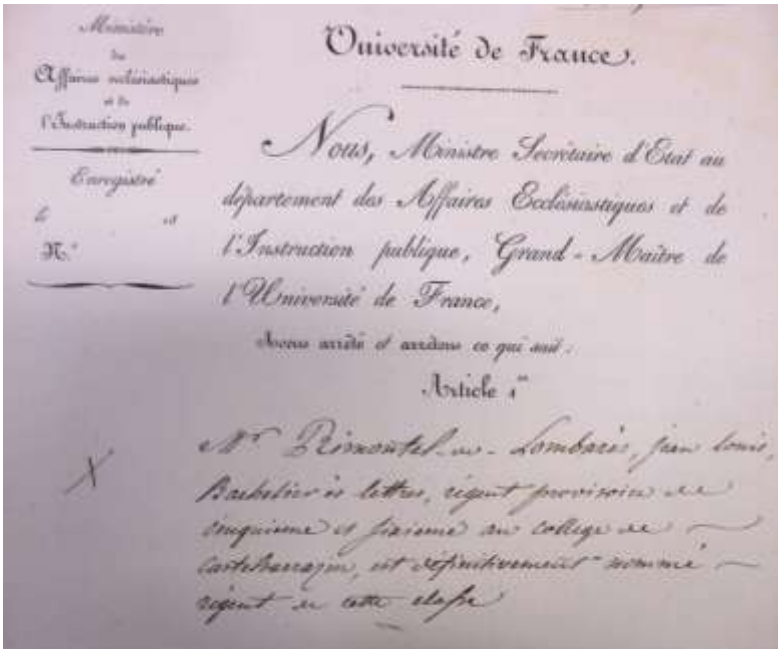 Ministère
des
Affaires ecclésiastiques
et de
l'Instruction publique.
Enregistré
le 18
N.°
Université de France.
Nous, Ministre Secrétaire d'Etat au
département des Affaires Ecclésiastiques et de
l'Instruction publique, Grand-Maître de
l'Université de France,
Avons arrêté et arrêtons ce qui suit :
Article 1er
Mr Lombarès, jean Louis,
Bachelier ès lettres, régent provisoire de
cinquième et sixième au collège de
Castelsarrazin, est définitivement nommé
régent de cette classe